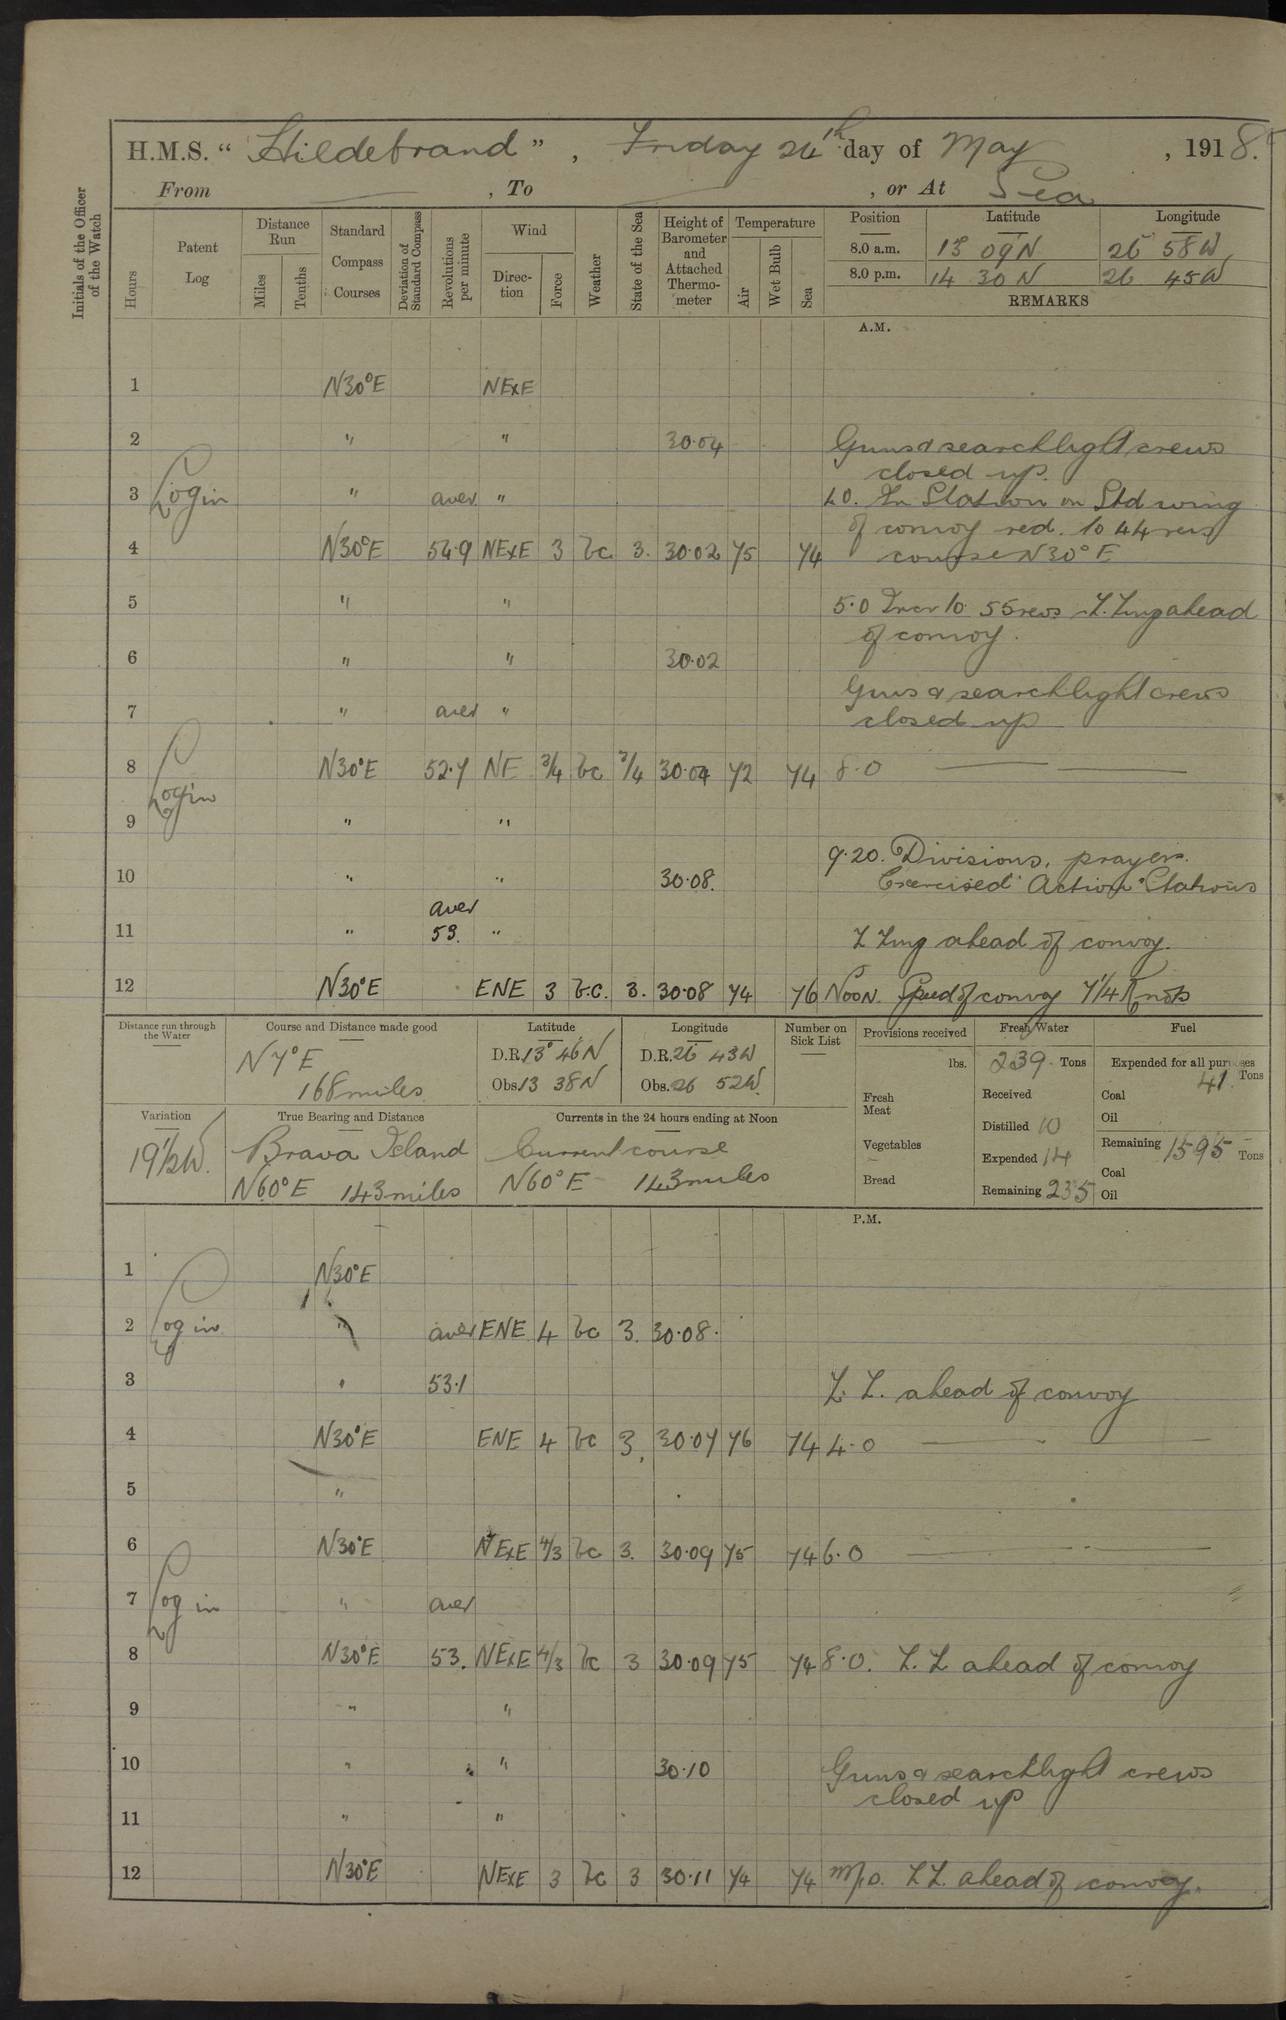 H.M.S. " Hildebrand " , Friday 24th day of May , 1918.
From — , To — , or At Sea
Initials of the Officer of the Watch
Hours
Patent Log
Distance Run
Miles
Tenths
Standard Compass Courses
Deviation of Standard Compass
Revolutions per minute
Wind
Direction
Force
Weather
State of the Sea
Height of Barometer and Attached Thermometer
Temperature
Air
Wet Bulb
Sea
Position Latitude Longitude
8.0 a.m. 13 09 N 26 58 W
8.0 p.m. 14 30 N 26 45 W
REMARKS
A.M.
1 N30°E NExE
2 " " 30.04 Guns & searchlight crews
closed up.
3 Log in " aver " 4.0. In Station on Stbd wing
of convoy red. to 44 revs
4 N30°E 54.9 NExE 3 bc 3. 30.02 75 74 course N30°E
5 " " 5.0 Incr to 55 revs Z. Zing ahead
of convoy.
6 " " 30.02
Guns & searchlight crews
7 " aver " closed up
8 N30°E 52.7 NE 3/4 bc 3/4 30.04 72 74 8.0 — —
Log in
9 " "
9.20. Divisions, prayers.
10 " " 30.08. Exercised Action Stations
aver
11 " 53. " Z Zing ahead of convoy.
12 N30°E ENE 3 b.c. 3. 30.08 74 76 Noon. Speed of convoy 7 1/4 Knots
Distance run through the Water
Course and Distance made good
N 7° E
168 miles
Latitude
D.R. 13° 46 N
Obs. 13 38 N
Longitude
D.R. 26 43 W
Obs. 26 52 W.
Number on Sick List
Provisions received
lbs.
Fresh Meat
Vegetables
Bread
Fresh Water
239 Tons
Received
Distilled 10
Expended 14
Remaining 235
Fuel
Expended for all purposes
41. Tons
Coal
Oil
Remaining 1595 Tons
Coal
Oil
Variation
19 1/2 W.
True Bearing and Distance
Brava Island
N60°E 143 miles
Currents in the 24 hours ending at Noon
Current course
N60°E 143 miles
P.M.
1 N30°E
2 Log in " aver ENE 4 bc 3. 30.08.
3 " 53.1 Z. Z. ahead of convoy
4 N30°E ENE 4 bc 3, 30.07 76 74 4.0 — —
5 "
6 N30°E NExE 4/3 bc 3. 30.09 75 74 6.0 — —
7 Log in " aver
8 N30°E 53. NExE 4/3 bc 3 30.09 75 74 8.0. Z. Z ahead of convoy
9 " "
10 " " 30.10 Guns & searchlight crews
closed up
11 " "
12 N30°E NExE 3 bc 3 30.11 74 74 M.o. Z Z. ahead of convoy.